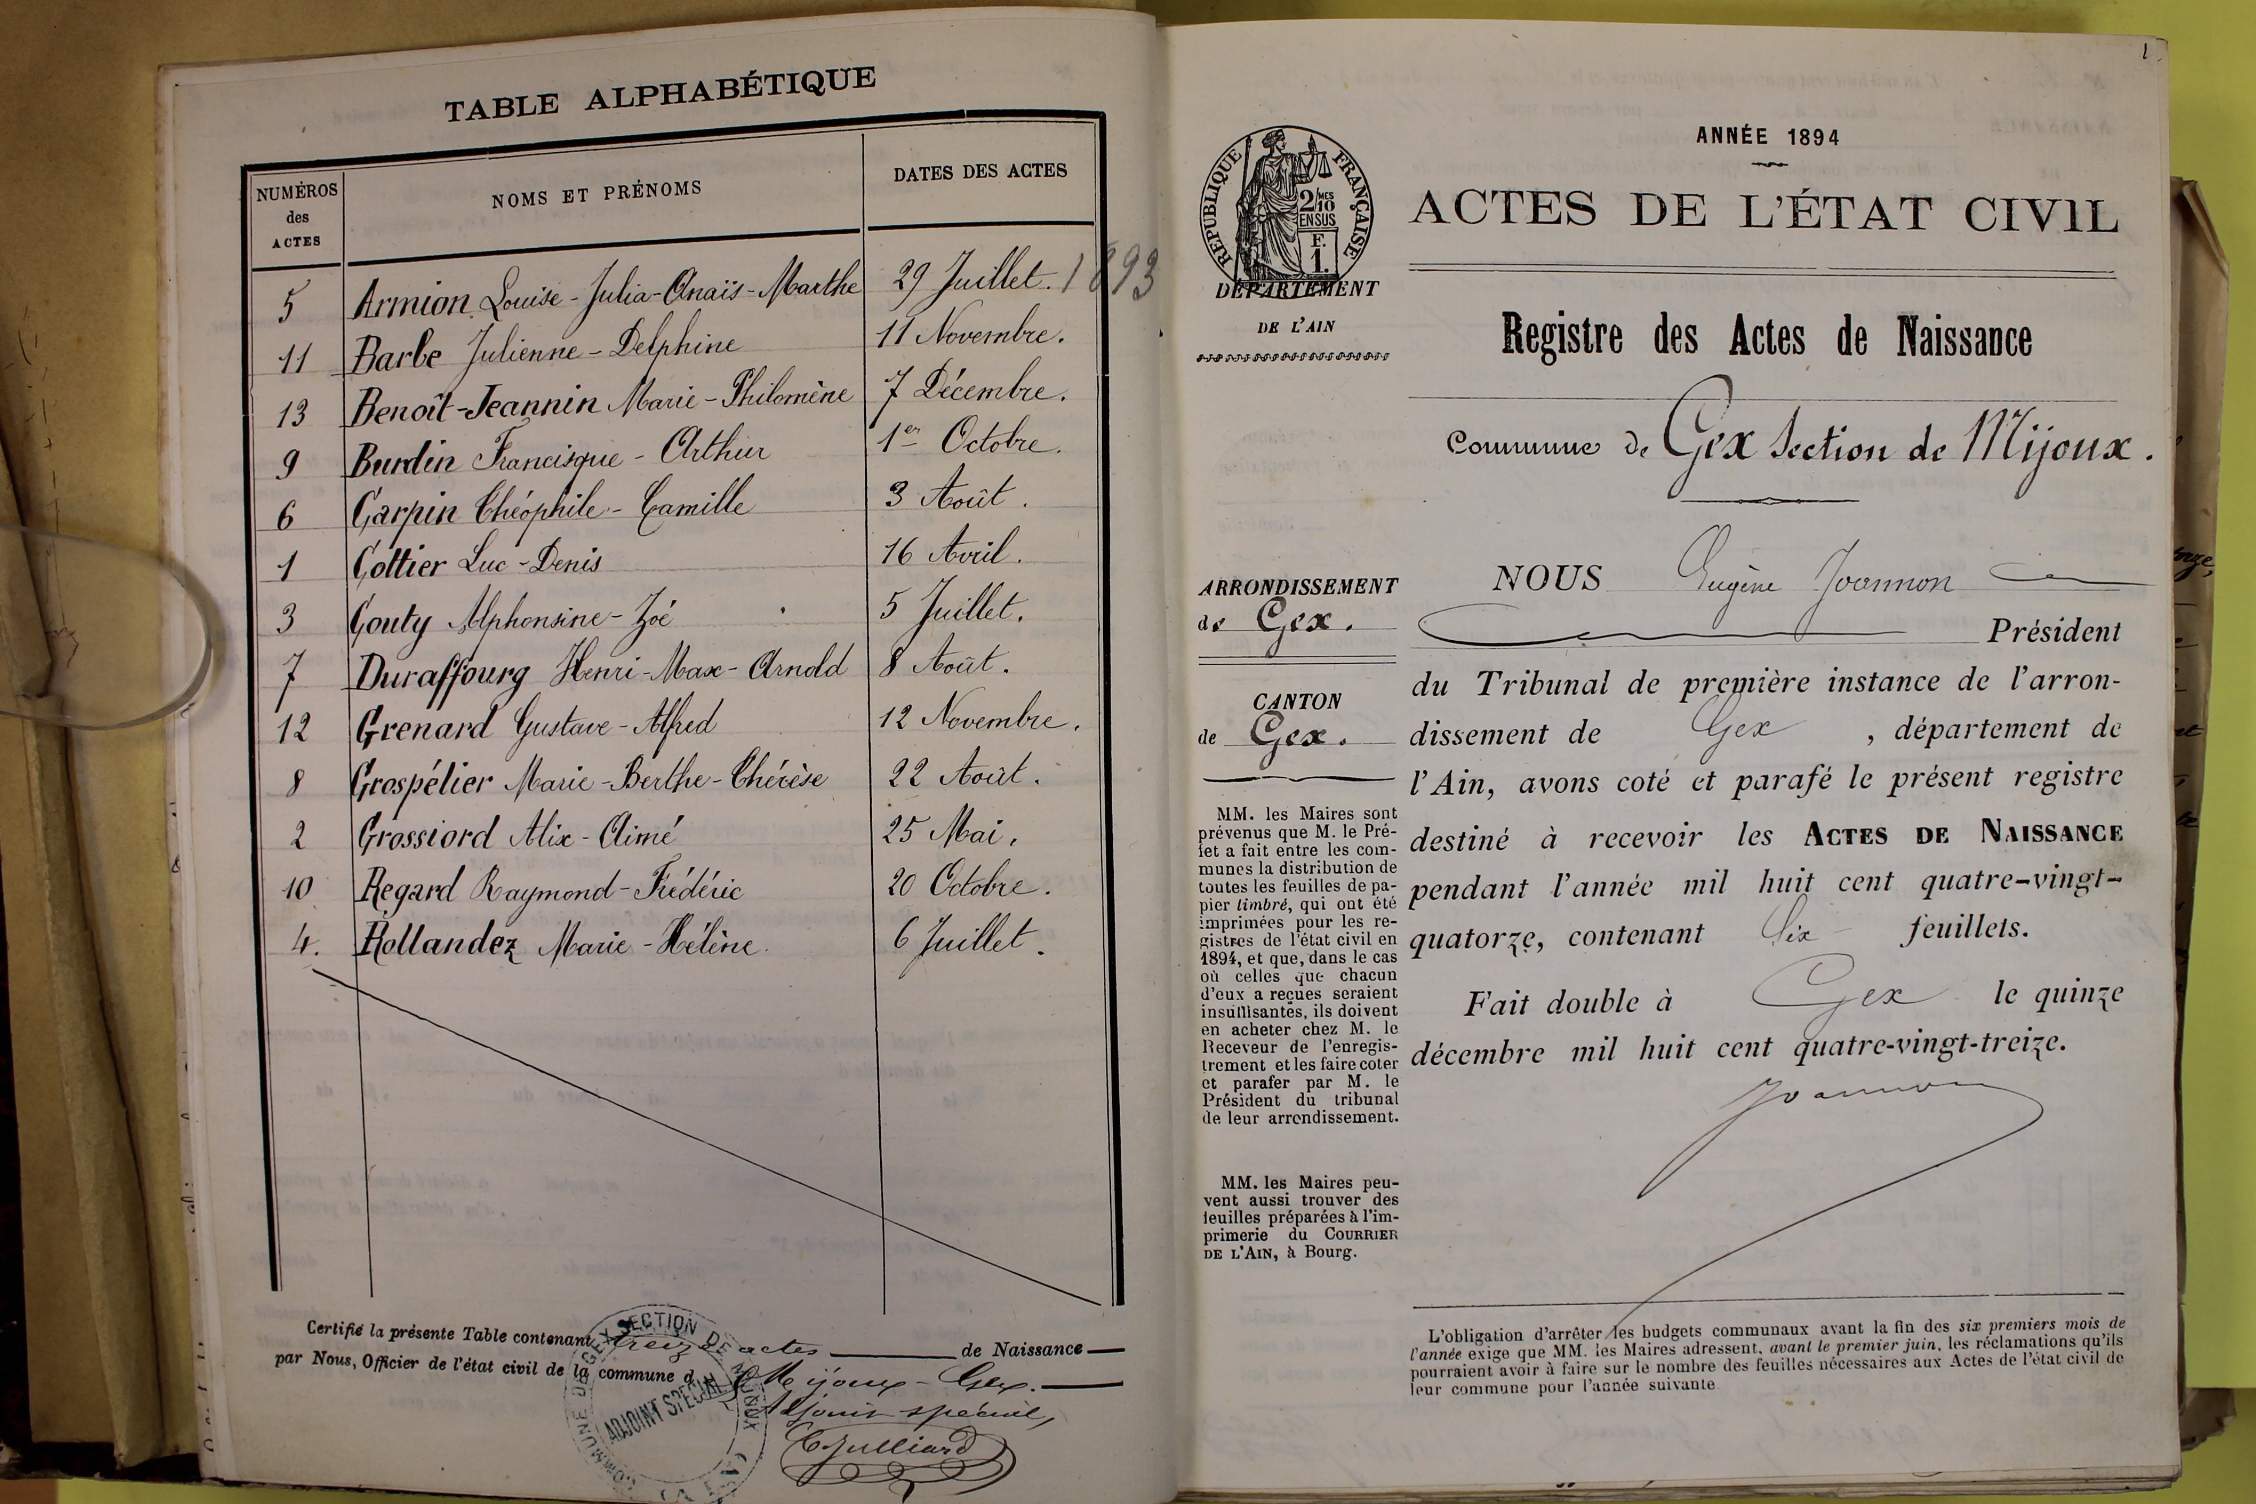 TABLE ALPHABÉTIQUE
NUMÉROS
des
ACTES
NOMS ET PRÉNOMS
DATES DES ACTES
5 Armion Louise-Julia-Anaïs-Marthe 29 Juillet. 1893
11 Barbe Julienne-Delphine 11 Novembre.
13 Benoît-Jeannin Marie-Philomène 7 Décembre.
9 Burdin Francisque-Arthur 1er Octobre.
6 Carpin Théophile-Camille 3 Août.
1 Cottier Luc-Denis 16 Avril.
3 Gouty Alphonsine-Zoé 5 Juillet.
7 Duraffourg Henri-Max-Arnold 8 Août.
12 Grenard Gustave-Alfred 12 Novembre.
8 Grospélier Marie-Berthe-Thérèse 22 Août.
2 Grossiord Alix-Aimé 25 Mai.
10 Regard Raymond-Frédéric 20 Octobre.
4. Rollandez Marie-Hélène. 6 Juillet.
Certifié la présente Table contenant treize actes de Naissance
par Nous, Officier de l'état civil de la commune de Mijoux-Gex.
Adjoint spécial,
Julliard
COMMUNE DE GEX SECTION DE MIJOUX
ADJOINT SPÉCIAL
1
RÉPUBLIQUE FRANÇAISE
2/MES
10
EN SUS
F.
1.
ANNÉE 1894
ACTES DE L'ÉTAT CIVIL
DÉPARTEMENT
DE L'AIN
Registre des Actes de Naissance
Commune de Gex Section de Mijoux.
ARRONDISSEMENT
de Gex.
CANTON
de Gex.
MM. les Maires sont
prévenus que M. le Pré-
fet a fait entre les com-
munes la distribution de
toutes les feuilles de pa-
pier timbré, qui ont été
imprimées pour les re-
gistres de l'état civil en
1894, et que, dans le cas
où celles que chacun
d'eux a reçues seraient
insuffisantes, ils doivent
en acheter chez M. le
Receveur de l'enregis-
trement et les faire coter
et parafer par M. le
Président du tribunal
de leur arrondissement.
MM. les Maires peu-
vent aussi trouver des
feuilles préparées à l'im-
primerie du COURRIER
DE L'AIN, à Bourg.
NOUS Eugène Joannon
Président
du Tribunal de première instance de l'arron-
dissement de Gex, département de
l'Ain, avons coté et parafé le présent registre
destiné à recevoir les ACTES DE NAISSANCE
pendant l'année mil huit cent quatre-vingt-
quatorze, contenant Six feuillets.
Fait double à Gex le quinze
décembre mil huit cent quatre-vingt-treize.
Joannon
L'obligation d'arrêter les budgets communaux avant la fin des six premiers mois de
l'année exige que MM. les Maires adressent, avant le premier juin, les réclamations qu'ils
pourraient avoir à faire sur le nombre des feuilles nécessaires aux Actes de l'état civil de
leur commune pour l'année suivante.